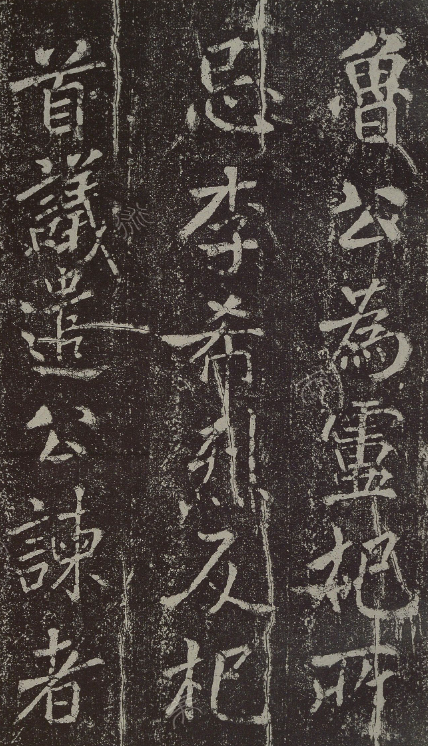 魯公為盧杞所
忌李希烈反杞
首議遣公諫者